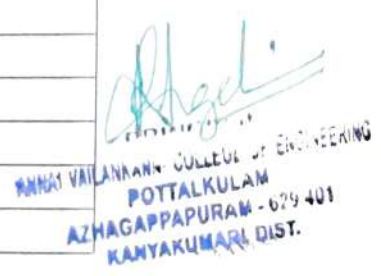 ANNAI VAILANKANNI COLLEGE OF ENGINEERING
POTTALKULAM
AZHAGAPPAPURAM - 629 401
KANYAKUMARI DIST.